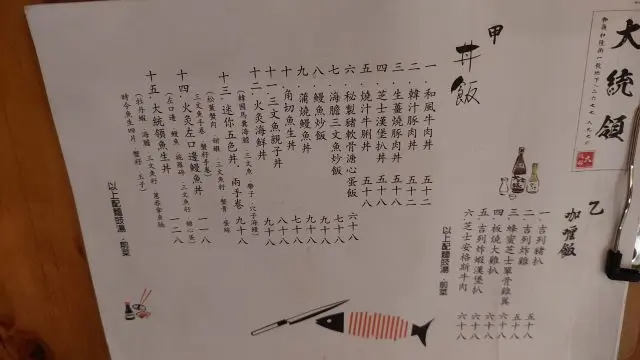 大統領
甲 丼飯
一．和風牛肉丼 五十二
二．韓汁豚肉丼 五十二
三．生薑燒豚肉丼 五十八
四．芝士漢堡扒丼 五十八
五．燒汁牛脷丼 五十八
六．秘製豬軟骨溏心蛋飯 六十八
七．海膽三文魚炒飯 七十八
八．鰻魚炒飯 七十八
九．蒲燒鰻魚丼 九十八
十．角切魚生丼 八十八
十一．三文魚親子丼 七十八
十二．火炙海鮮丼 九十八
十三．迷你五色丼 兩手卷 九十八
十四．火炙左口邊鰻魚丼 一一八
十五．大統領魚生丼 一二八
以上配麵豉湯．前菜
乙 咖喱飯
一．吉列豬扒 五十八
二．吉列炸雞 五十八
三．蜂蜜芝士單骨雞翼 六十八
四．板燒大雞扒 六十八
五．吉列炸蝦漢堡扒 六十八
六．芝士安格斯牛肉 六十八
以上配麵豉湯．前菜